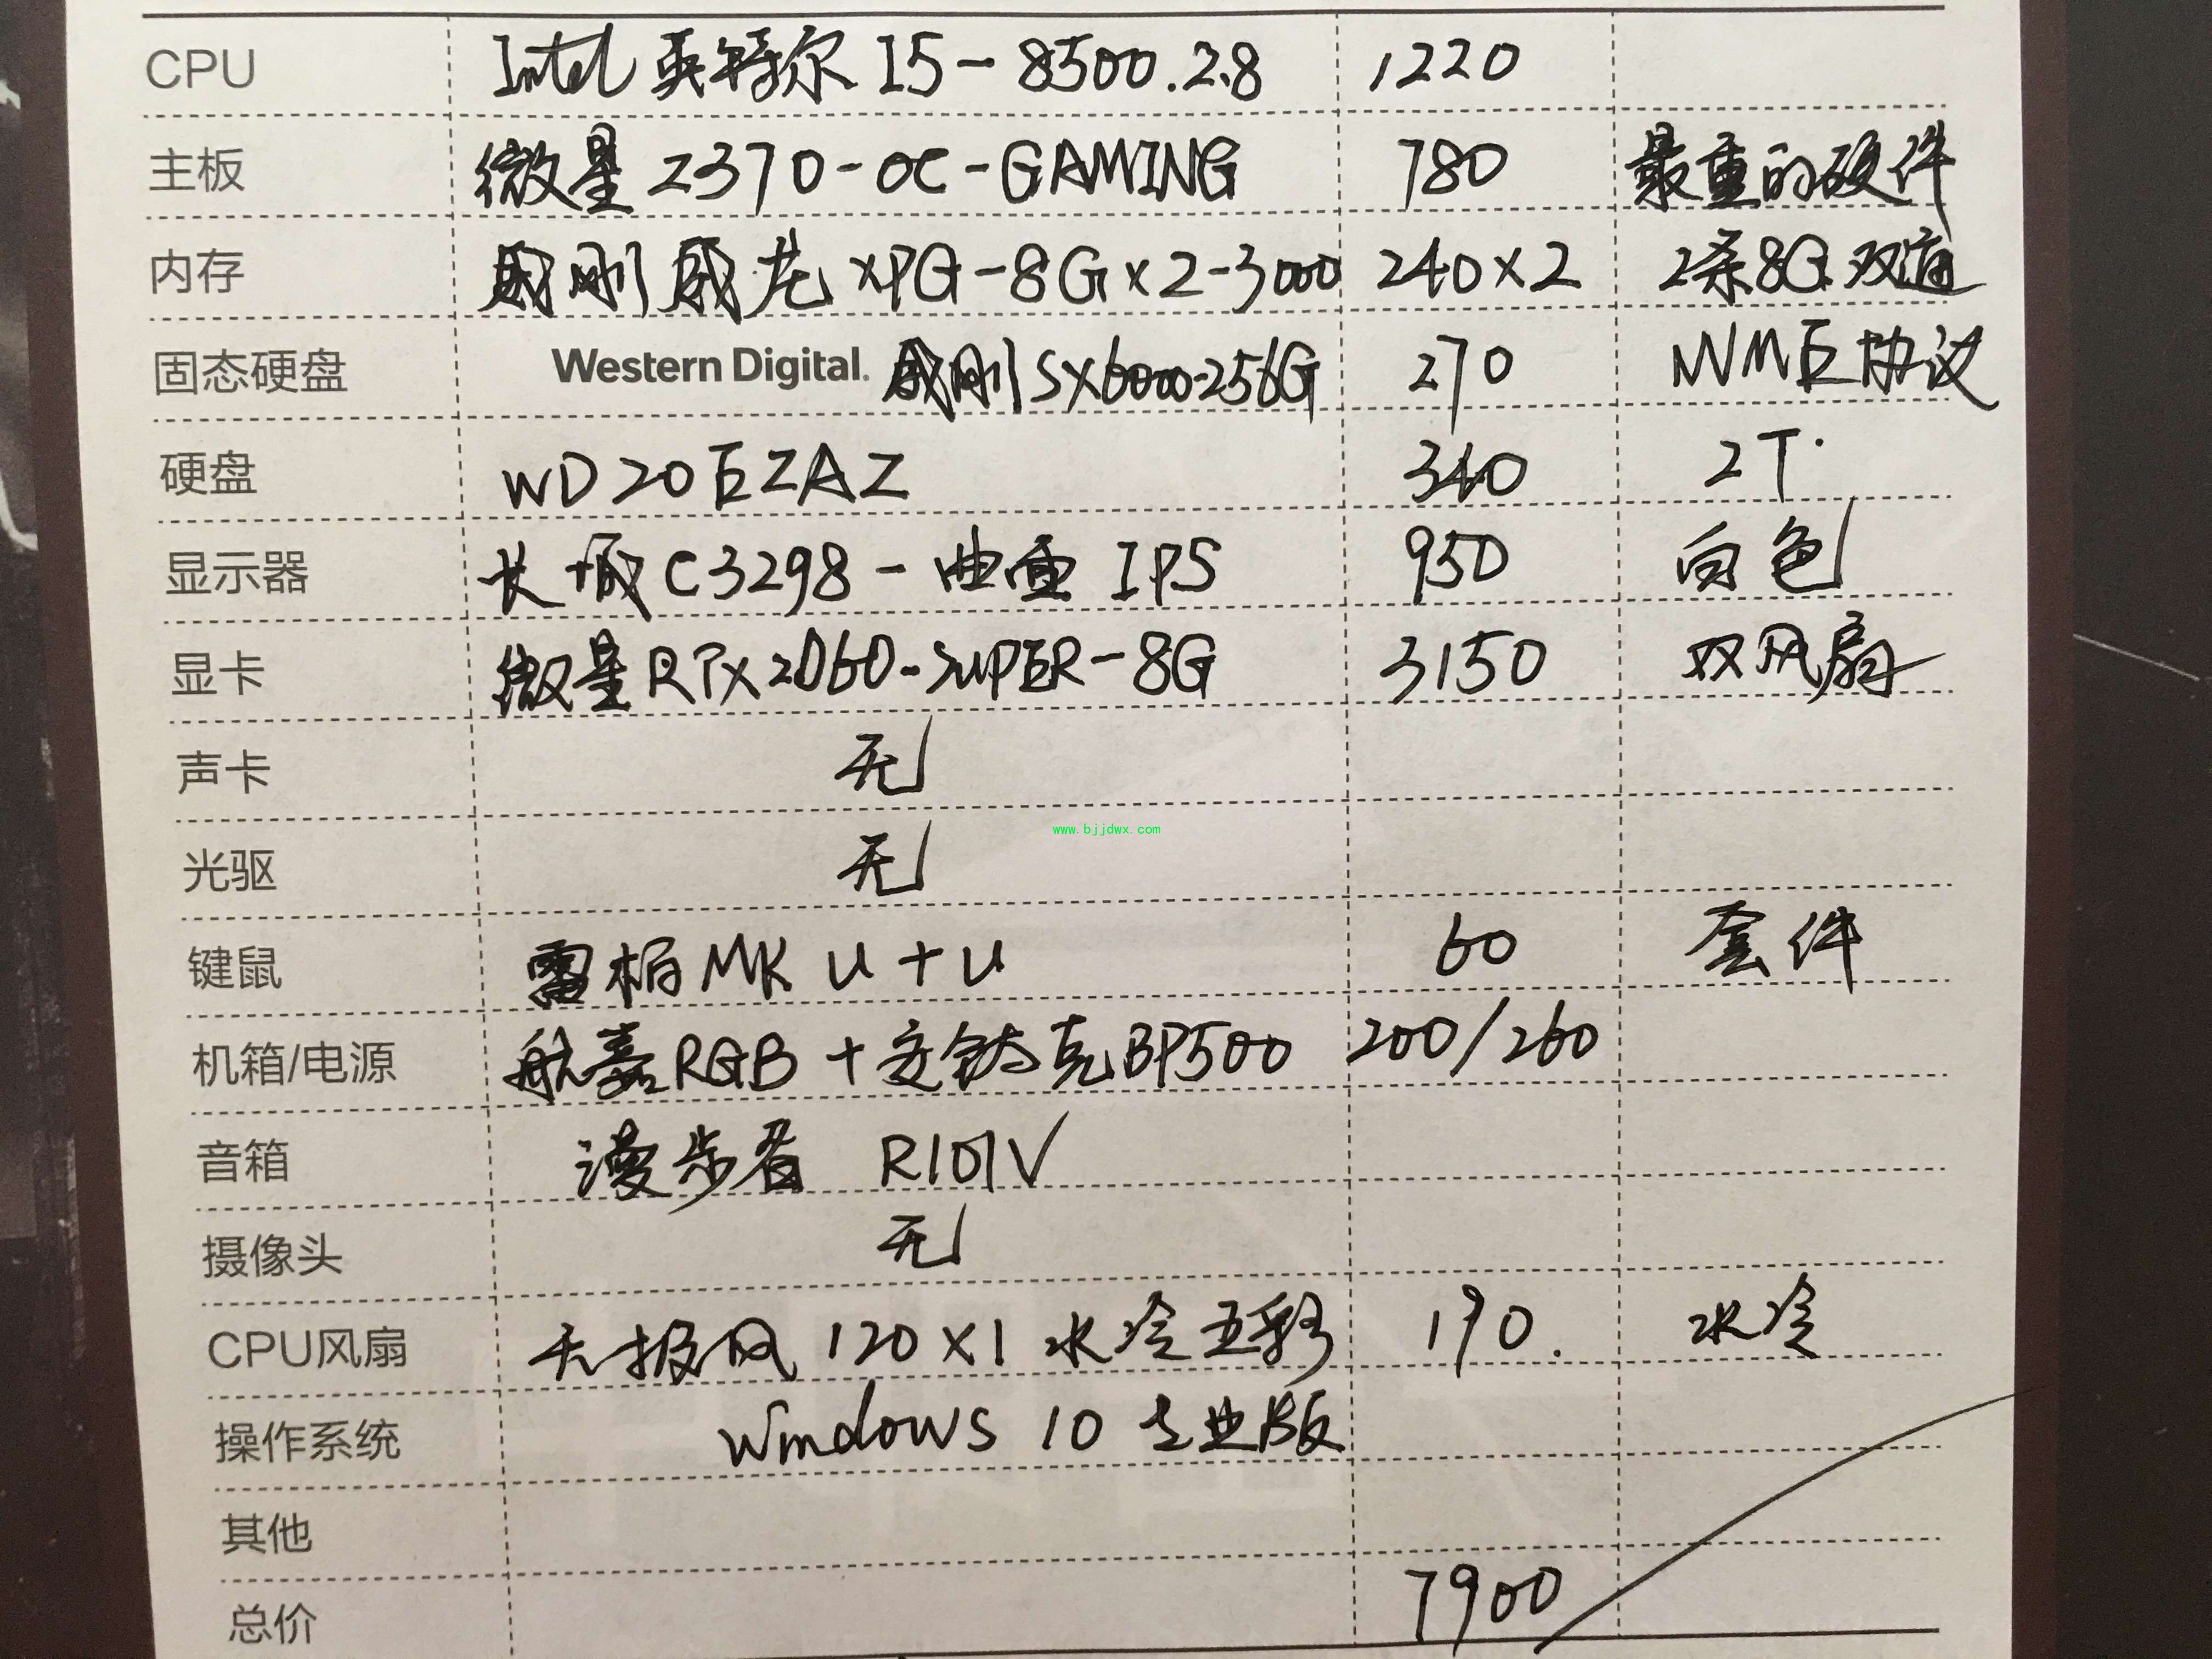 CPU Intel 英特尔 I5-8500.2.8 1220
主板 微星 Z370-OC-GAMING 780 最重的硬件
内存 威刚威龙 XPG-8G×2-3000 240×2 2条8G双道
固态硬盘 Western Digital. 威刚SX6000-256G 270 NVME协议
硬盘 WD20EZAZ 340 2T.
显示器 长城C3298-曲面 IPS 950 白色
显卡 微星RTX2060-SUPER-8G 3150 双风扇
声卡 无
www.bjjdwx.com
光驱 无
键鼠 雷柏MK U+U 60 套件
机箱/电源 航嘉RGB+安钛克BP500 200/260
音箱 漫步者 R101V
摄像头 无
CPU风扇 天极风120×1水冷五彩 190. 水冷
操作系统 Windows 10 专业版
其他
总价 7900